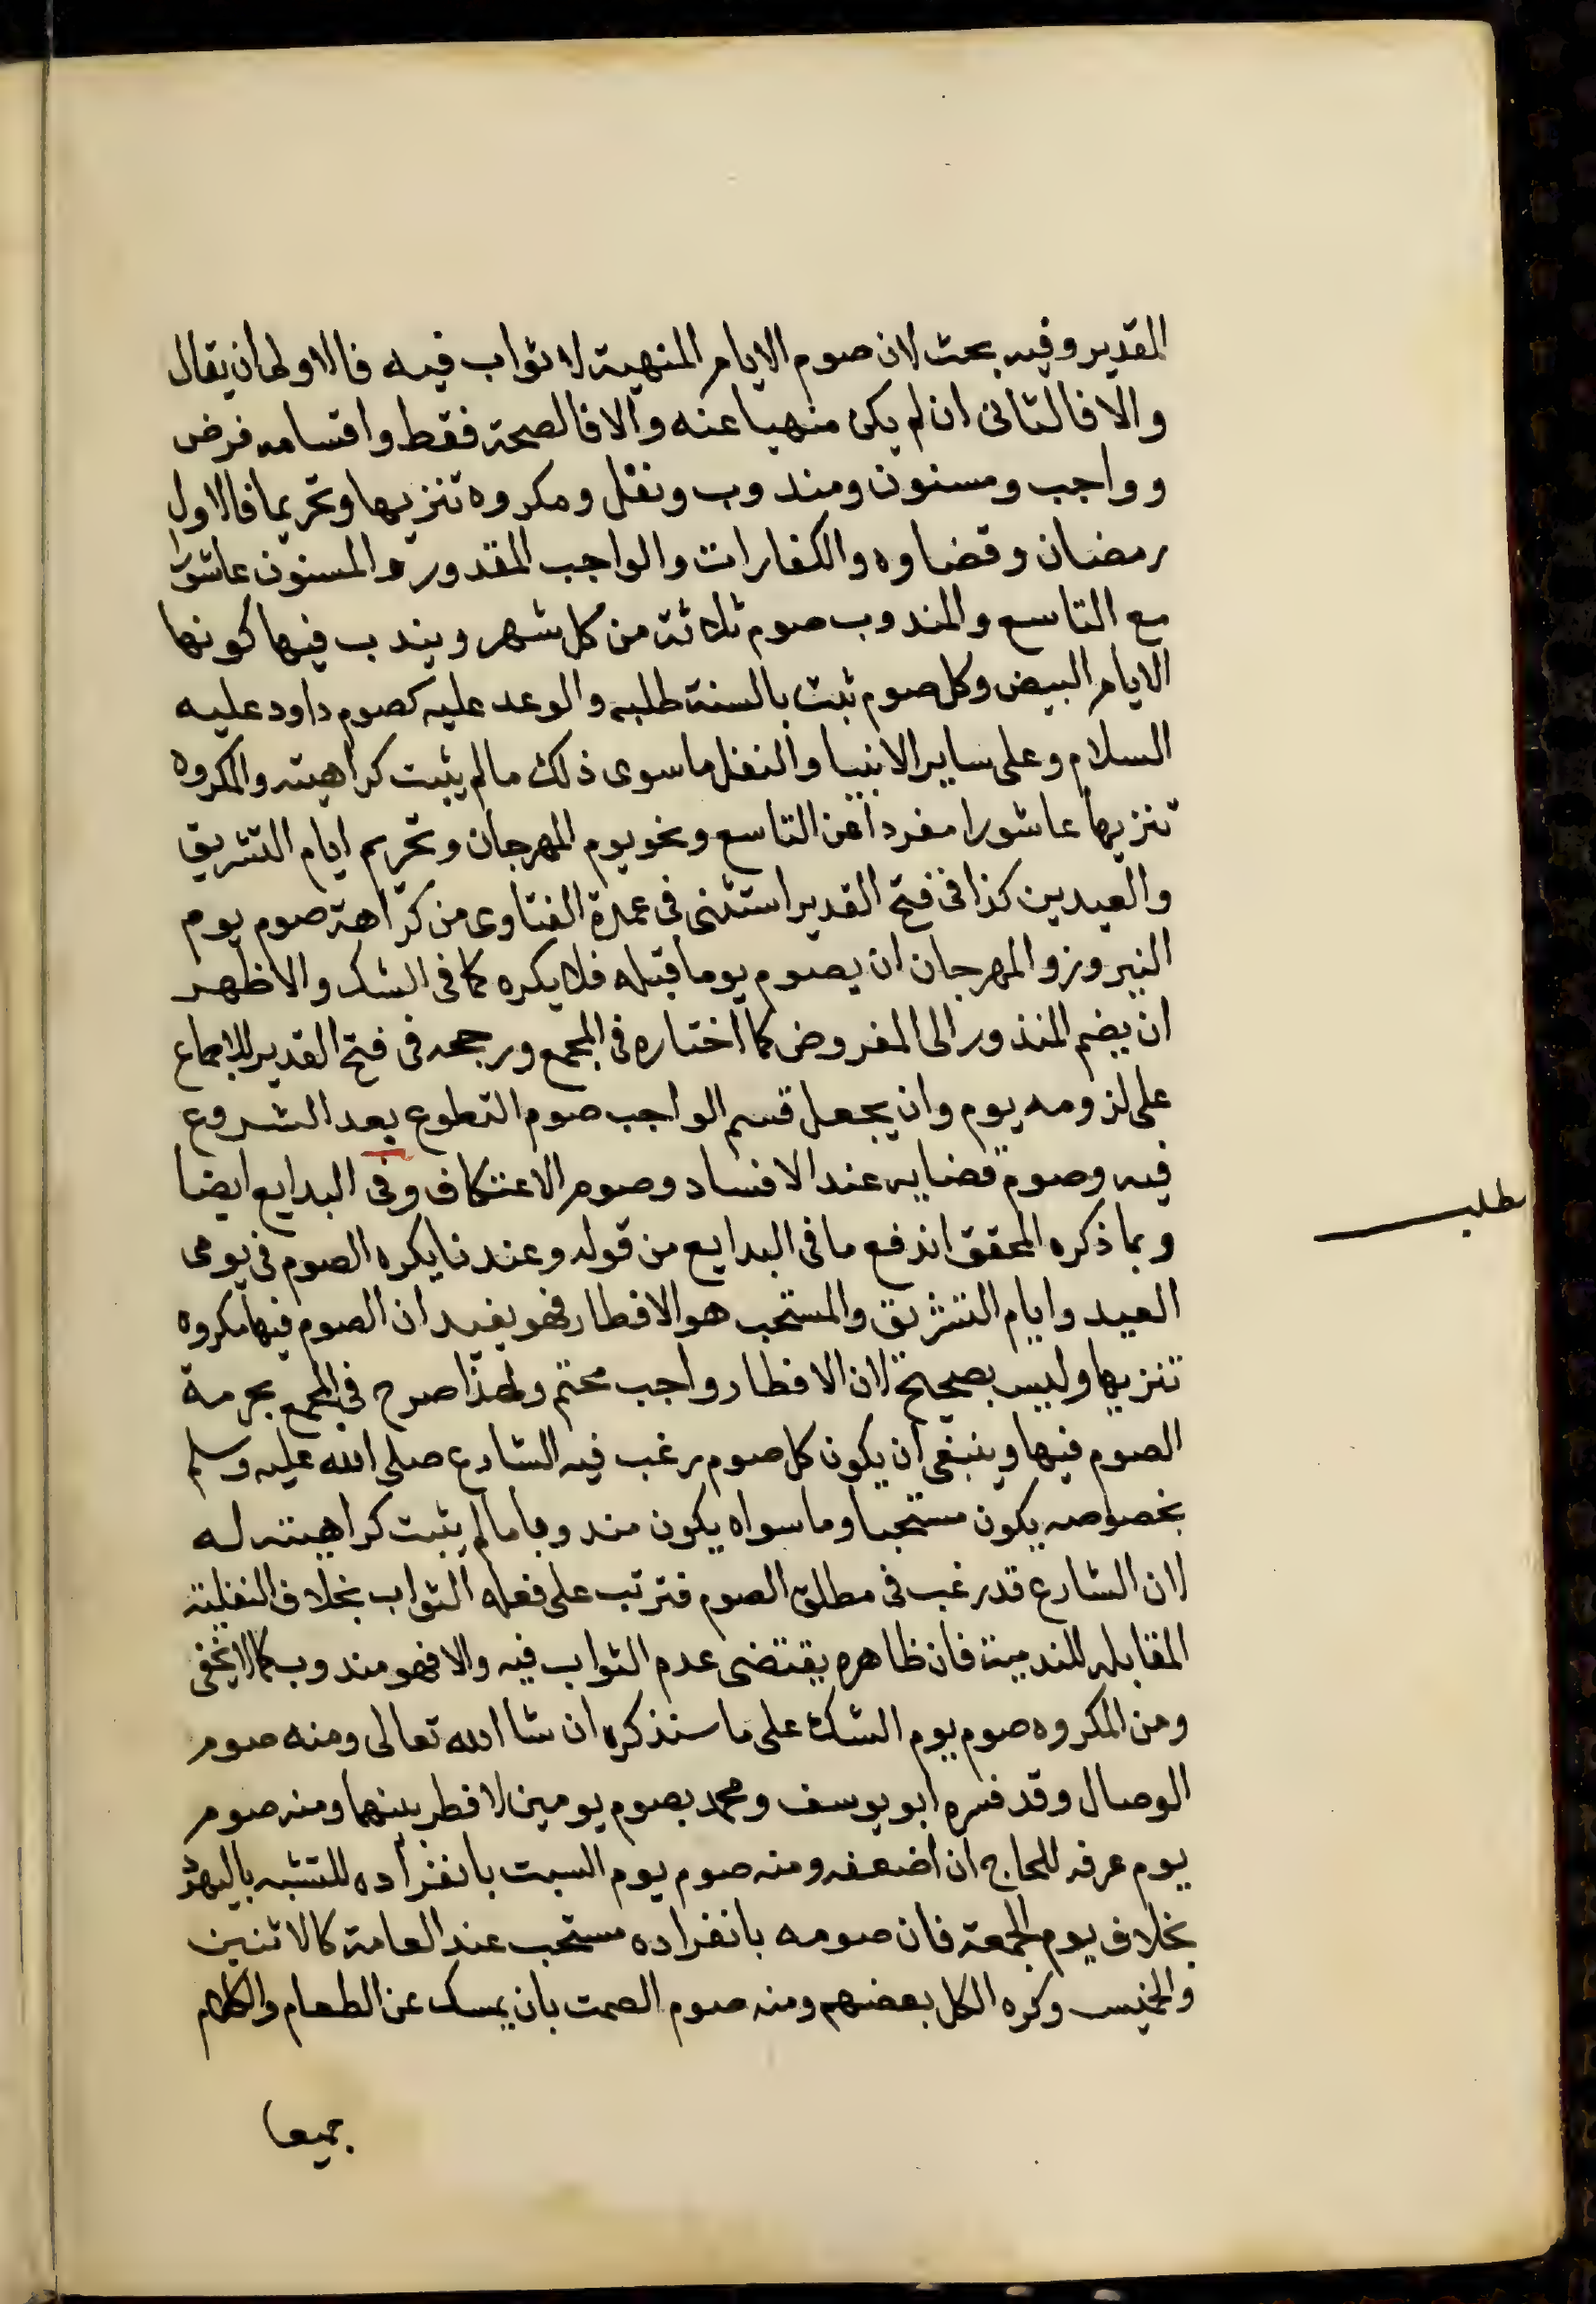 القدير وفيه بحث لان صوم الايام المنهية لا ثواب فيه فالاولى ان يقال
والا فالثانى ان لم يكن منهيا عنه والا فالصحة فقط واقسامه فرض
وواجب ومسنون ومندوب ونفل ومكروه تنزيها وتحريما فالاول
رمضان وقضاوه والكفارات والواجب المقدور والمسنون عاشورا
مع التاسع والمندوب صوم ثلاثة من كل شهر ويندب فيها كونها
الايام البيض وكل صوم ثبت بالسنة طلبه والوعد عليه كصوم داود عليه
السلام وعلى ساير الانبيا والنفل ما سوى ذلك مالم يثبت كراهيته والمكروه
تنزيها عاشورا مفردا عن التاسع ونحو يوم المهرجان وتحريم ايام التشريق
والعيدين كذا فى فتح القدير استثنى فى عمدة الفتاوى من كراهة صوم يوم
النيروز والمهرجان ان يصوم يوما قبله فلا يكره كما فى الشك والاظهر
ان يضم المنذور الى المفروض كما اختاره فى المجمع ورجحه فى فتح القدير للاجماع
على لزومه يوم وان يجعل قسم الواجب صوم التطوع بعد الشروع
فيه وصوم قضايه عند الافساد وصوم الاعتكاف وفى البدايع ايضا
وبما ذكره المحقق اندفع ما فى البدايع من قوله وعندنا يكره الصوم فى يومى
العيد وايام التشريق والمستحب هو الافطار فهو يفيد ان الصوم فيها مكروه
تنزيها وليس بصحيح لان الافطار واجب محتم ولهذا صرح فى المجمع بحرمة
الصوم فيها وينبغى ان يكون كل صوم رغب فيه الشارع صلى الله عليه وسلم
بخصوصه يكون مستحبا وما سواه يكون مندوبا مالم يثبت كراهيته له
لان الشارع قد رغب فى مطلق الصوم فترتب على فعله الثواب بخلاف النفلية
المقابله للندبية فان ظاهره يقتضى عدم الثواب فيه والا فهو مندوب كما لا يخفى
ومن المكروه صوم يوم الشك على ما سنذكره ان شا الله تعالى ومنه صوم
الوصال وقد فسره ابو يوسف ومحمد بصوم يومين لا فطر بينهما ومنه صوم
يوم عرفه للحاج ان اضعفه ومنه صوم يوم السبت بانفراده للتشبه باليهود
بخلاف يوم الجمعة فان صومه بانفراده مستحب عند العامة كالاثنين
والخميس وكره الكل بعضهم ومنه صوم الصمت بان يمسك عن الطعام والكلام
جميعا
مطلب